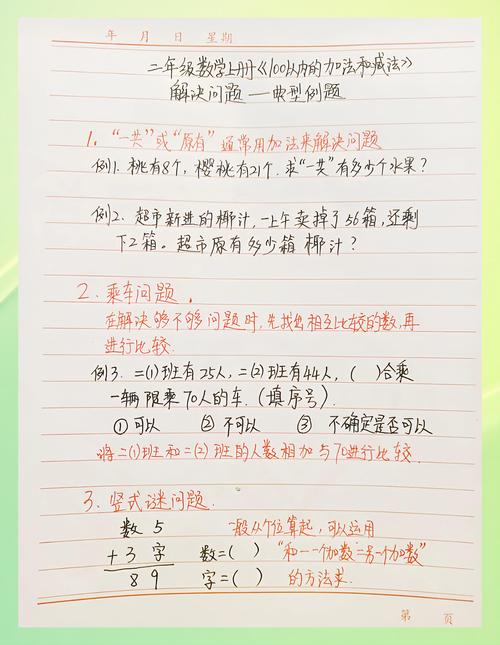 年 月 日 星期
二年级数学上册《100以内的加法和减法》
解决问题——典型例题
1. “一共”或“原有”通常用加法来解决问题
例1. 桃有8个, 樱桃有21个. 求“一共”有多少个水果?
例2. 超市新进的椰汁, 一上午卖掉了56箱, 还剩
下2箱. 超市原有多少箱椰汁?
2. 乘车问题.
在解决够不够问题时, 先找出相互比较的数, 再
进行比较.
例3. 二(1)班有25人, 二(2)班有44人, ( )合乘
一辆限乘70人的车. (填序号).
①可以 ②不可以 ③ 不确定是否可以
将二(1)班和二(2)班的人数相加与70进行比较.
3. 竖式谜问题.
数 5 一般从个位算起, 可以运用
+ 3 字 数=( ) “和-一个加数=另一个加数”
8 9 字=( ) 的方法求.
第 页